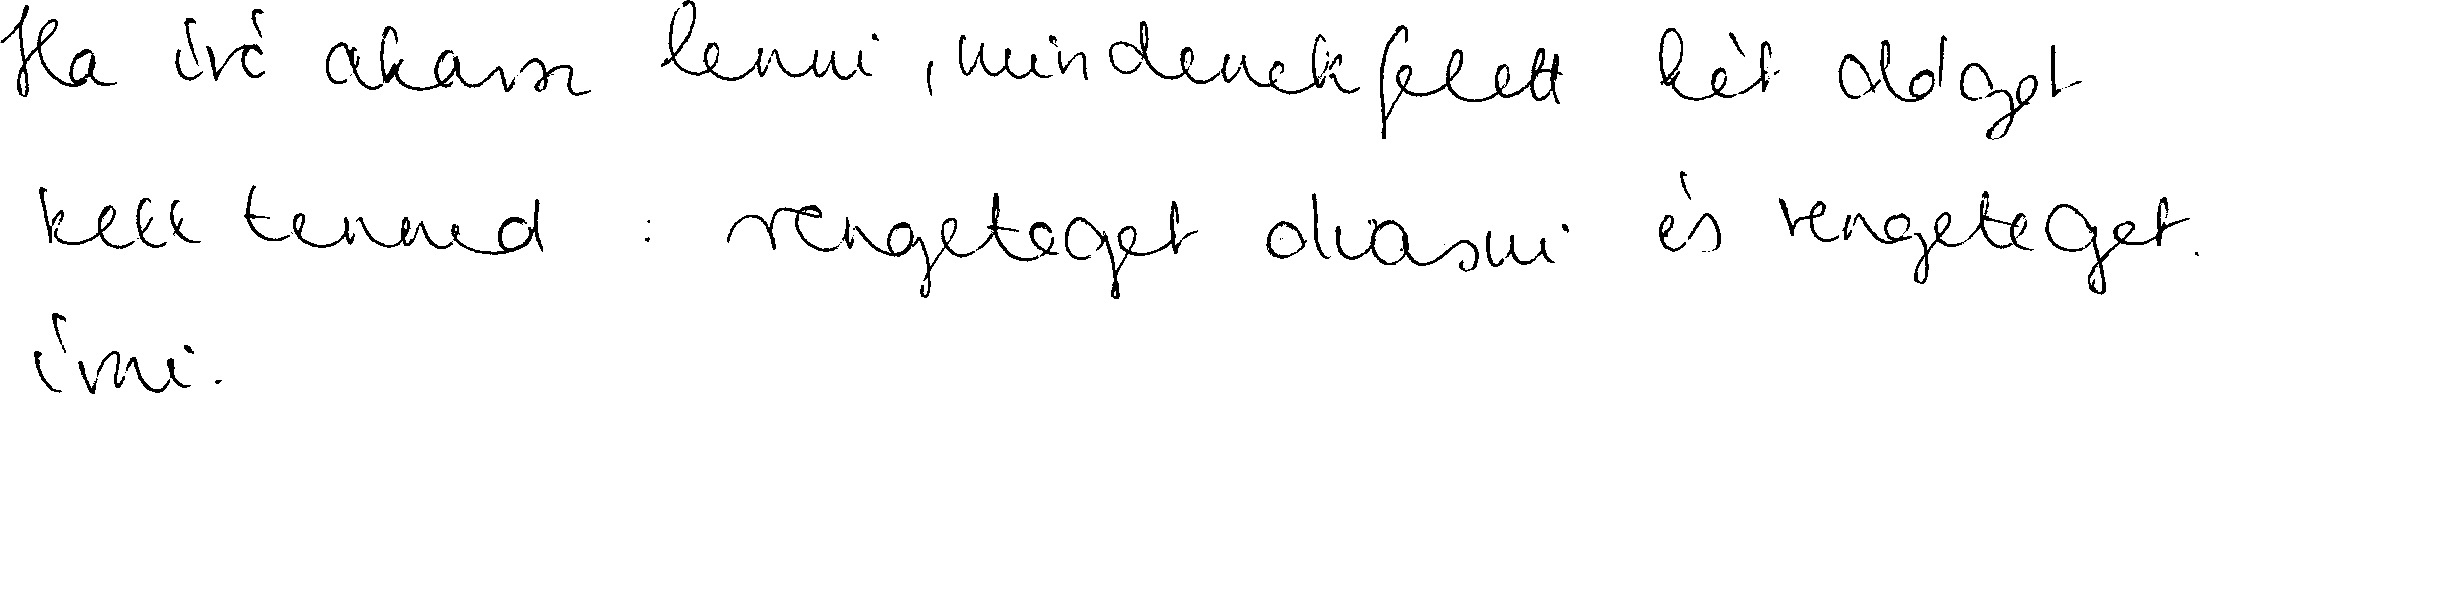 Ha író akarsz lenni, mindenekfelett két dolgot
kell tenned : rengeteget olvasni és rengeteget.
írni.